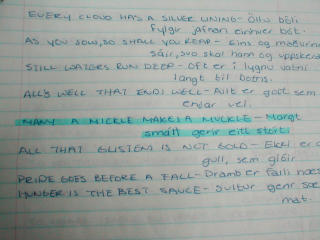 EVERY CLOUD HAS A SILVER LINING - Öllu böli
fylgir jafnan einhver bót.
AS YOU SOW, SO SHALL YOU REAP - Eins og maðurinn
sáir, svo skal hann og uppskera
STILL WATERS RUN DEEP - Oft er í lygnu vatni
langt til botns.
ALL'S WELL THAT ENDS WELL - Allt er gott sem
endar vel.
MANY A MICKLE MAKES A MUCKLE - Margt
smátt gerir eitt stórt.
ALL THAT GLISTENS IS NOT GOLD - Ekki er a
gull, sem glóir
PRIDE GOES BEFORE A FALL - Dramb er falli næs
HUNGER IS THE BEST SAUCE - Sultur gerir sæ
mat.